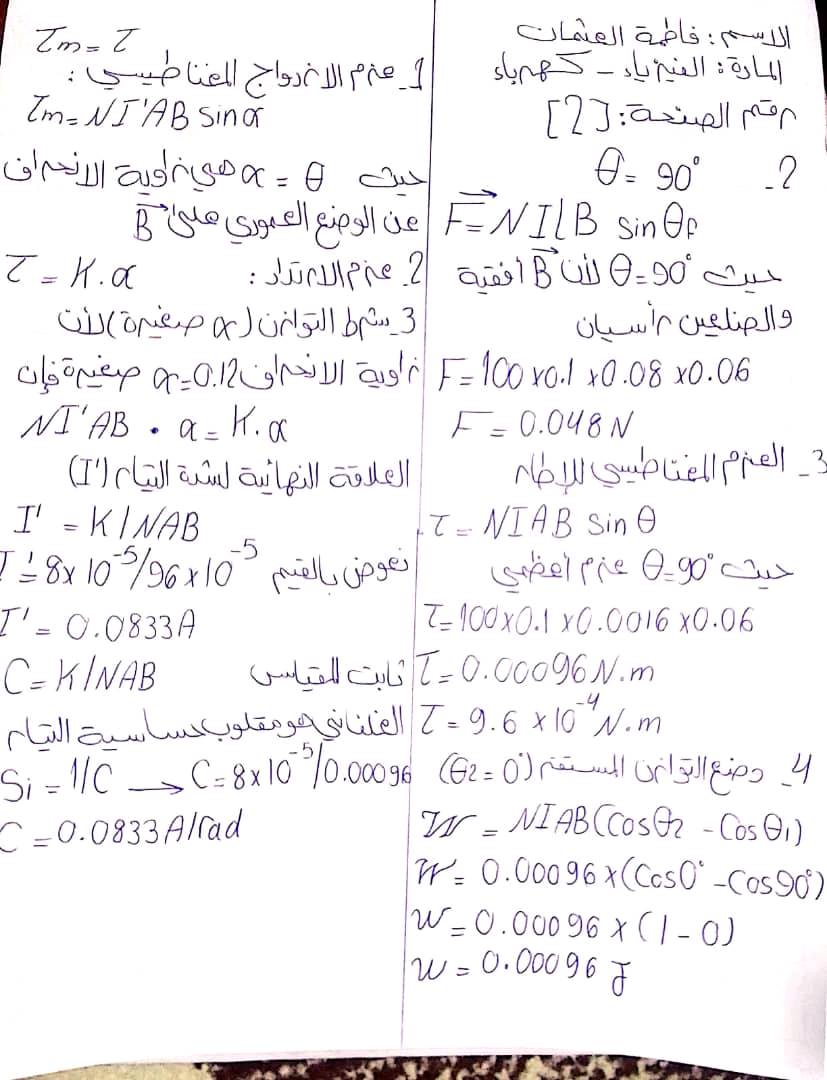 الاسم: فاطمة العثمان
المادة: الفيزياء - كهرباء
رقم الصفحة: [2]
2- θ = 90°
F = NILB sin θ
حيث θ=90° لأن B أفقية
والضلعين رأسيان
F = 100 x 0.1 x 0.08 x 0.06
F = 0.048 N
3- العزم المغناطيسي للإطار
τ = NIAB sin θ
حيث θ=90° عزم أعظمي
τ = 100x0.1 x0.0016 x0.06
τ = 0.00096 N.m
τ = 9.6 x 10⁻⁴ N.m
4- وضع التوازن المستقر (θ2 = 0°)
W = NIAB(Cosθ2 - Cosθ1)
W = 0.00096 x (Cos0° - Cos90°)
W = 0.00096 x (1 - 0)
W = 0.00096 J
τm = τ
1- عزم الازدواج المغناطيسي:
τm = NI'AB sin α
حيث α = θ هي زاوية الانحراف
عن الوضع العمودي على B
2- عزم الارتداد: τ = K.α
3- شرط التوازن (α صغيرة) لأن
زاوية الانحراف α=0.12 صغيرة فإن
NI'AB . α = K.α
العلاقة النهائية لشدة التيار (I')
I' = K/NAB
نعوض بالقيم I' = 8x10⁻⁵/96x10⁻⁵
I' = 0.0833A
C = K/NAB ثابت المقياس
الغلفاني هو مقلوب حساسية التيار
Si = 1/C → C = 8x10⁻⁵/0.00096
C = 0.0833 A/rad